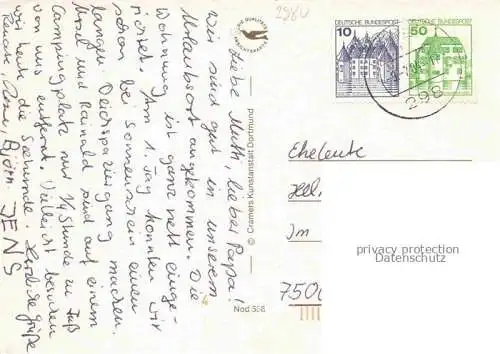 2980
Liebe Mutti, lieber Papa!
Wir sind gut in unserem
Urlaubsort angekommen. Die
Wohnung ist ganz nett einge-
richtet. Am 1. Tag konnten wir
schon bei Sonnenschein einen
langen Deichspaziergang machen.
und Rainald sind auf einem
Campingplatz nur ½ Stunde zu Fuß
von uns entfernt. Vielleicht besuchen
wir heute die Seehunde. Herzliche Grüße
Björn JENS
DIE QUALITÄTS
ANSICHTSKARTE
© Cramers Kunstanstalt Dortmund
Nod 558
DEUTSCHE BUNDESPOST
10
DEUTSCHE BUNDESPOST
50
298
Eheleute
Hel
Im
750
privacy protection
Datenschutz